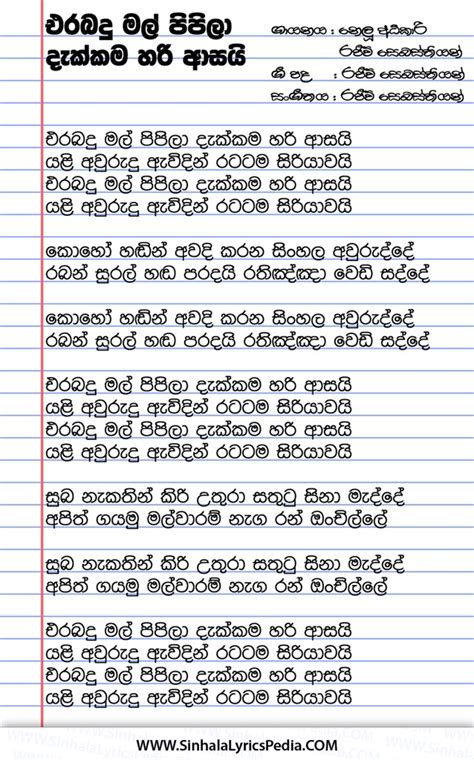 එරබදු මල් පිපිලා
දැක්කම හරි ආසයි
ගායනය : නෙළූ අධිකාරි
රජීව් සෙබස්තියන්
ගී පද : රජීව් සෙබස්තියන්
සංගීතය : රජීව් සෙබස්තියන්
එරබදු මල් පිපිලා දැක්කම හරි ආසයි
යළි අවුරුදු ඇවිදින් රටටම සිරියාවයි
එරබදු මල් පිපිලා දැක්කම හරි ආසයි
යළි අවුරුදු ඇවිදින් රටටම සිරියාවයි
කොහෝ හඬින් අවදි කරන සිංහල අවුරුද්දේ
රබන් සුරල් හඬ පරදයි රතිඤ්ඤා වෙඩි සද්දේ
කොහෝ හඬින් අවදි කරන සිංහල අවුරුද්දේ
රබන් සුරල් හඬ පරදයි රතිඤ්ඤා වෙඩි සද්දේ
එරබදු මල් පිපිලා දැක්කම හරි ආසයි
යළි අවුරුදු ඇවිදින් රටටම සිරියාවයි
එරබදු මල් පිපිලා දැක්කම හරි ආසයි
යළි අවුරුදු ඇවිදින් රටටම සිරියාවයි
සුබ නැකතින් කිරි උතුරා සතුටු සිනා මැද්දේ
අපිත් ගයමු මල්වාරම් නැග රන් ඔංචිල්ලේ
සුබ නැකතින් කිරි උතුරා සතුටු සිනා මැද්දේ
අපිත් ගයමු මල්වාරම් නැග රන් ඔංචිල්ලේ
එරබදු මල් පිපිලා දැක්කම හරි ආසයි
යළි අවුරුදු ඇවිදින් රටටම සිරියාවයි
එරබදු මල් පිපිලා දැක්කම හරි ආසයි
යළි අවුරුදු ඇවිදින් රටටම සිරියාවයි
www.SinhalaLyricsPedia.COM